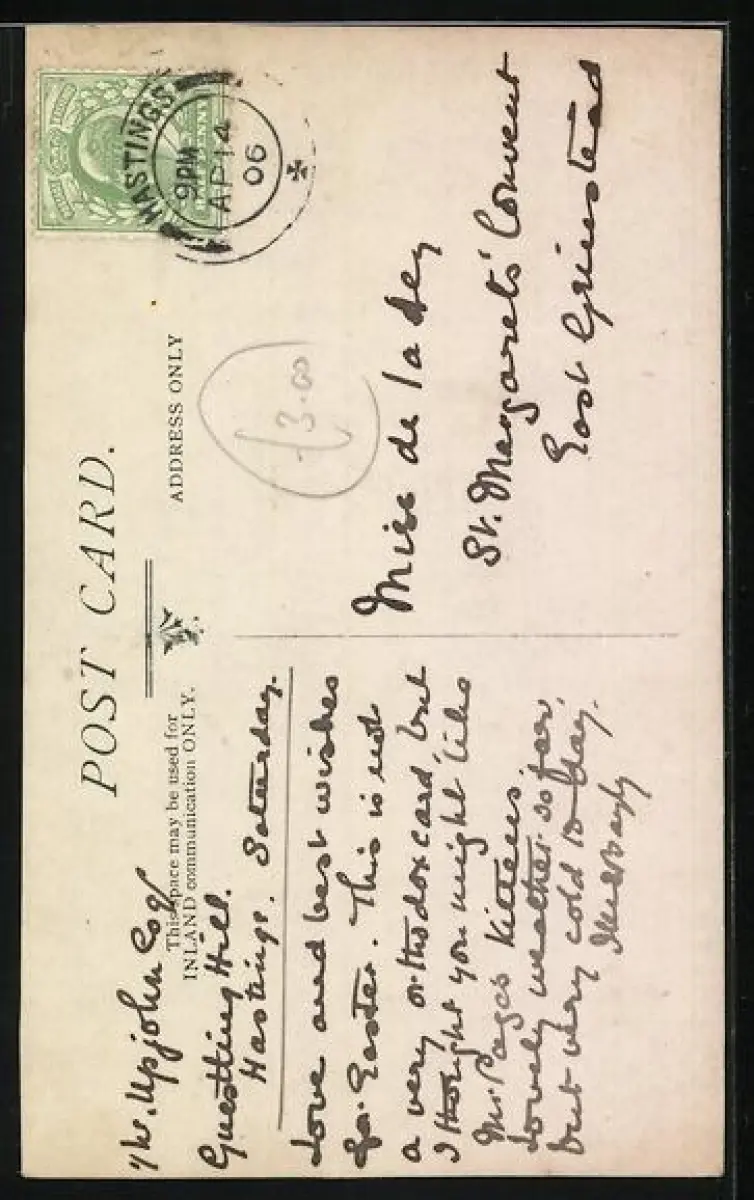 POST CARD.
This space may be used for
INLAND communication ONLY.
ADDRESS ONLY
HASTINGS
9 PM
AP 14
06
£3.00
Upjohn Esq
Guestling Hill.
Hastings. Saturday.
Love and best wishes
for Easter. This is not
a very orthodox card, but
I thought you might like
Mr. Pages kittens.
Lovely weather so far,
but very cold to-day.
Miss de la Hey
St. Margarets' Convent
East Grinstead